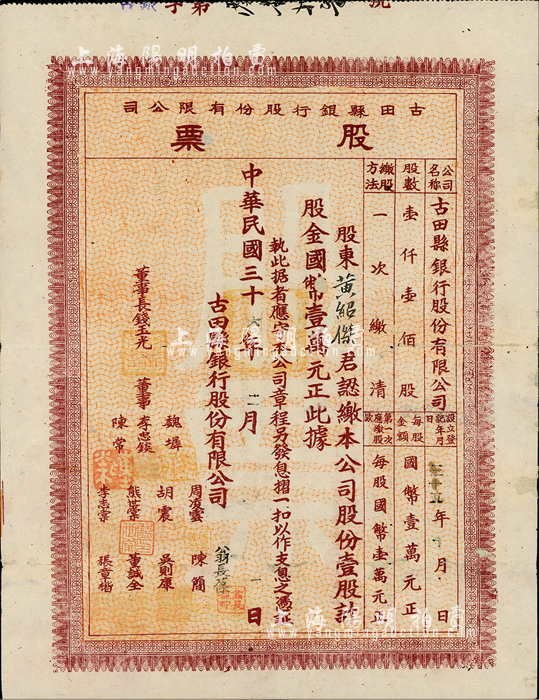 號
第字
上海陽明拍賣
www.yangmingauction.com
古田縣銀行股份有限公司
股票
公司名称
古田縣銀行股份有限公司
股數
壹仟壹佰股
繳股方法
一次繳清
設立登記年月日
年月日
每股金額
國幣壹萬元正
第一次應繳股款
每股國幣壹萬元正
股東黃紹傑君認繳本公司股份壹股計
股金國幣壹萬元正此據
執此据者應守本公司章程另發息摺一扣以作支息之憑証
中華民國三十六年十二月一日
古田縣銀行股份有限公司
董事長錢玉光
董事
魏墀
李志錟
陳常
周彥雲
胡震
熊世榮
李志崇
翁長藻
陳簡
吳則康
董鋮全
張章楷